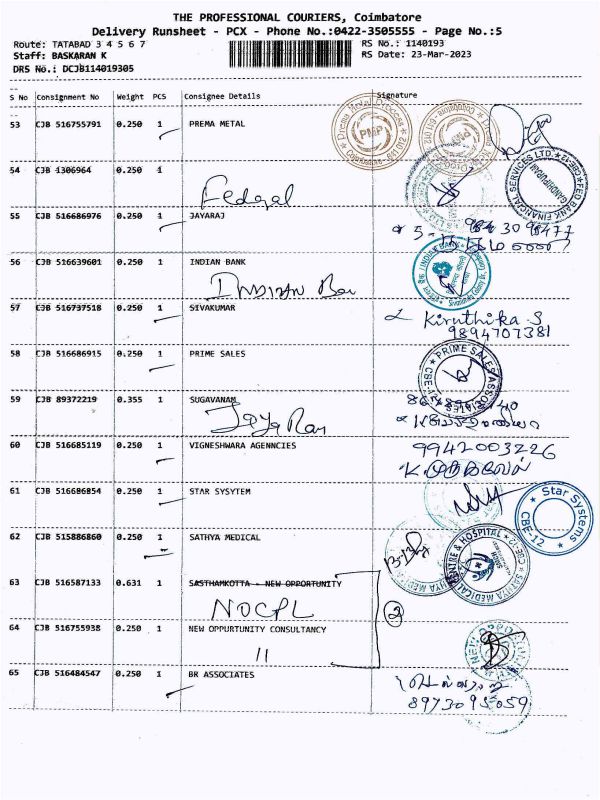 THE PROFESSIONAL COURIERS, Coimbatore
Delivery Runsheet - PCX - Phone No.:0422-3505555 - Page No.:5
Route: TATABAD 3 4 5 6 7 RS No.: 1140193
Staff: BASKARAN K RS Date: 23-Mar-2023
DRS No.: DCJB114019305
S No Consignment No Weight PCS Consignee Details Signature
53 CJB 516755791 0.250 1 PREMA METAL
PMP
54 CJB 1306964 0.250 1
Fedgal
FED BANK FINANCIAL SERVICES LTD. CBE-12
55 CJB 516686976 0.250 1 JAYARAJ
56 CJB 516639601 0.250 1 INDIAN BANK
INDIAN Ban
57 CJB 516737518 0.250 1 SIVAKUMAR
Kiruthika S
9894707381
58 CJB 516686915 0.250 1 PRIME SALES
PRIME SALES ASSOCIATES
59 CJB 89372219 0.355 1 SUGAVANAM
Jaya Ram
60 CJB 516685119 0.250 1 VIGNESHWARA AGENNCIES
9942003226
61 CJB 516686854 0.250 1 STAR SYSYTEM
Star Systems CBE-12
62 CJB 515886860 0.250 1 SATHYA MEDICAL
SATHYA MEDICAL CENTRE & HOSPITAL
63 CJB 516587133 0.631 1 SASTHAMKOTTA - NEW OPPORTUNITY
NOCPL
2
64 CJB 516755938 0.250 1 NEW OPPURTUNITY CONSULTANCY
11
65 CJB 516484547 0.250 1 BR ASSOCIATES
8973095059